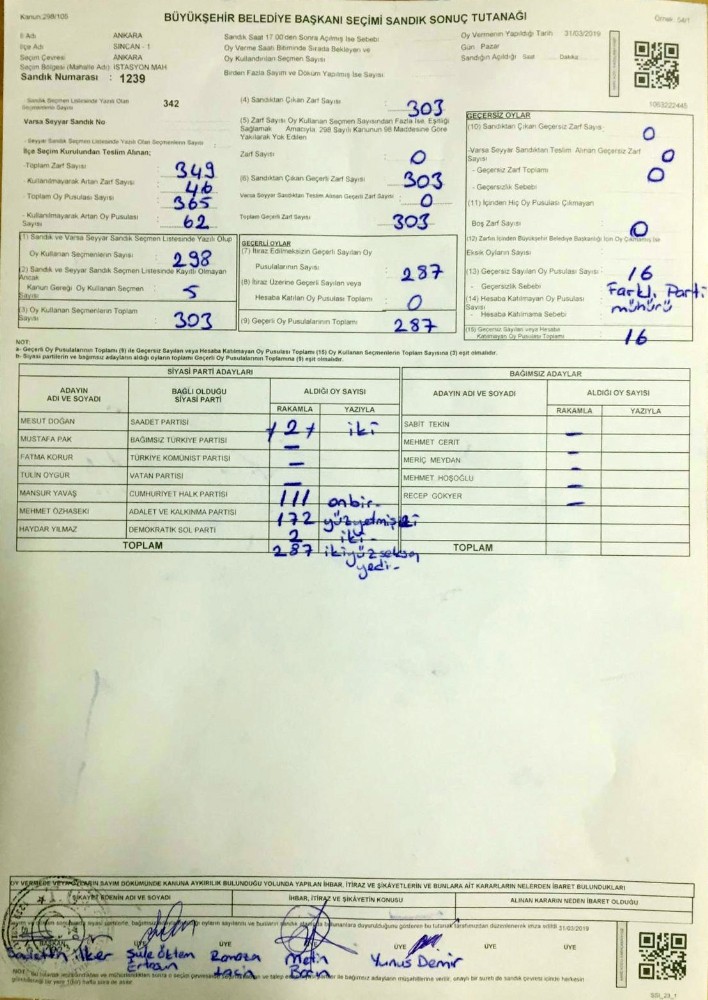 Kanun:298/105
BÜYÜKŞEHİR BELEDİYE BAŞKANI SEÇİMİ SANDIK SONUÇ TUTANAĞI
Örnek: 54/1
İl Adı ANKARA
İlçe Adı SİNCAN - 1
Seçim Çevresi ANKARA
Seçim Bölgesi (Mahalle Adı) İSTASYON MAH
Sandık Numarası : 1239
Sandık Saat 17:00'den Sonra Açılmış İse Sebebi
Oy Verme Saati Bitiminde Sırada Bekleyen ve
Oy Kullandırılan Seçmen Sayısı
Birden Fazla Sayım ve Döküm Yapılmış İse Sayısı
Oy Vermenin Yapıldığı Tarih 31/03/2019
Gün Pazar
Sandığın Açıldığı Saat Dakika
1063222445
Sandık Seçmen Listesinde Yazılı Olan
Seçmenlerin Sayısı 342
Varsa Seyyar Sandık No
- Seyyar Sandık Seçmen Listesinde Yazılı Olan Seçmenlerin Sayısı
İlçe Seçim Kurulundan Teslim Alınan;
-Toplam Zarf Sayısı : 349
- Kullanılmayarak Artan Zarf Sayısı : 46
- Toplam Oy Pusulası Sayısı : 365
- Kullanılmayarak Artan Oy Pusulası
Sayısı : 62
(4) Sandıktan Çıkan Zarf Sayısı : 303
(5) Zarf Sayısı Oy Kullanan Seçmen Sayısından Fazla İse, Eşitliği
Sağlamak Amacıyla, 298 Sayılı Kanunun 98 Maddesine Göre
Yakılarak Yok Edilen
Zarf Sayısı : 0
(6) Sandıktan Çıkan Geçerli Zarf Sayısı : 303
Varsa Seyyar Sandıktan Teslim Alınan Geçerli Zarf Sayısı : 0
Toplam Geçerli Zarf Sayısı : 303
GEÇERSİZ OYLAR
(10) Sandıktan Çıkan Geçersiz Zarf Sayısı : 0
-Varsa Seyyar Sandıktan Teslim Alınan Geçersiz Zarf
Sayısı 0
- Geçersiz Zarf Toplamı 0
- Geçersizlik Sebebi
(11) İçinden Hiç Oy Pusulası Çıkmayan
Boş Zarf Sayısı : 0
(12) Zarfın İçinden Büyükşehir Belediye Başkanlığı İçin Oy Çıkmamış İse
Eksik Oyların Sayısı
(13) Geçersiz Sayılan Oy Pusulası Sayısı : 16
- Geçersizlik Sebebi : Farklı Parti
mühürü
(14) Hesaba Katılmayan Oy Pusulası
Sayısı
- Hesaba Katılmama Sebebi
(15) Geçersiz Sayılan veya Hesaba
Katılmayan Oy Pusulası Toplamı : 16
(1) Sandık ve Varsa Seyyar Sandık Seçmen Listesinde Yazılı Olup
Oy Kullanan Seçmenlerin Sayısı : 298
(2) Sandık ve Seyyar Sandık Seçmen Listesinde Kayıtlı Olmayan
Ancak
Kanun Gereği Oy Kullanan Seçmen
Sayısı : 5
(3) Oy Kullanan Seçmenlerin Toplam
Sayısı : 303
GEÇERLİ OYLAR
(7) İtiraz Edilmeksizin Geçerli Sayılan Oy
Pusulalarının Sayısı : 287
(8) İtiraz Üzerine Geçerli Sayılan veya
Hesaba Katılan Oy Pusulası Toplamı : 0
(9) Geçerli Oy Pusulalarının Toplamı : 287
NOT:
a- Geçerli Oy Pusulaları Toplamı (9) ile Geçersiz Sayılan veya Hesaba Katılmayan Oy Pusulası Toplamı (15) Oy Kullanan Seçmenlerin Toplam Sayısına (3) eşit olmalıdır.
b- Siyasi partilerin ve bağımsız adayların aldığı oyların toplamı Geçerli Oy Pusulalarının Toplamına (9) eşit olmalıdır.
SİYASİ PARTİ ADAYLARI
BAĞIMSIZ ADAYLAR
ADAYIN ADI VE SOYADI
BAĞLI OLDUĞU SİYASİ PARTİ
ALDIĞI OY SAYISI
RAKAMLA YAZIYLA
ADAYIN ADI VE SOYADI
ALDIĞI OY SAYISI
RAKAMLA YAZIYLA
MESUT DOĞAN SAADET PARTİSİ 2 iki
MUSTAFA PAK BAĞIMSIZ TÜRKİYE PARTİSİ —
FATMA KORUR TÜRKİYE KOMÜNİST PARTİSİ —
TÜLİN OYGÜR VATAN PARTİSİ —
MANSUR YAVAŞ CUMHURİYET HALK PARTİSİ 111 onbir-
MEHMET ÖZHASEKİ ADALET VE KALKINMA PARTİSİ 172 yüzyetmişiki
HAYDAR YILMAZ DEMOKRATİK SOL PARTİ 2 iki-
TOPLAM 287 ikiyüzseksen
yedi-
SABİT TEKİN —
MEHMET CERİT —
MERİÇ MEYDAN —
MEHMET HOŞOĞLU —
RECEP GÖKYER —
TOPLAM
OY VERMEDE VEYA OYLARIN SAYIM DÖKÜMÜNDE KANUNA AYKIRILIK BULUNDUĞU YOLUNDA YAPILAN İHBAR, İTİRAZ VE ŞİKAYETLERİN VE BUNLARA AİT KARARLARIN NELERDEN İBARET BULUNDUKLARI
ŞİKAYET EDENİN ADI VE SOYADI
İHBAR, İTİRAZ VE ŞİKAYETİN KONUSU
ALINAN KARARIN NEDEN İBARET OLDUĞU
31/03/2019
BAŞKAN
ÜYE
ÜYE
ÜYE
ÜYE
ÜYE
İlker
Şule Öktem
Ertaun
Ramazan
Metin
Yunus Demir
SSI_23_1